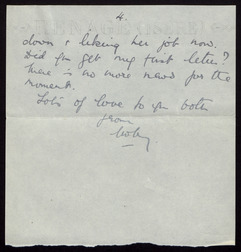 4.
down & liking her job now.
Did you get my first letter?
There is no more news for the
moment.
Lots of love to you both
from